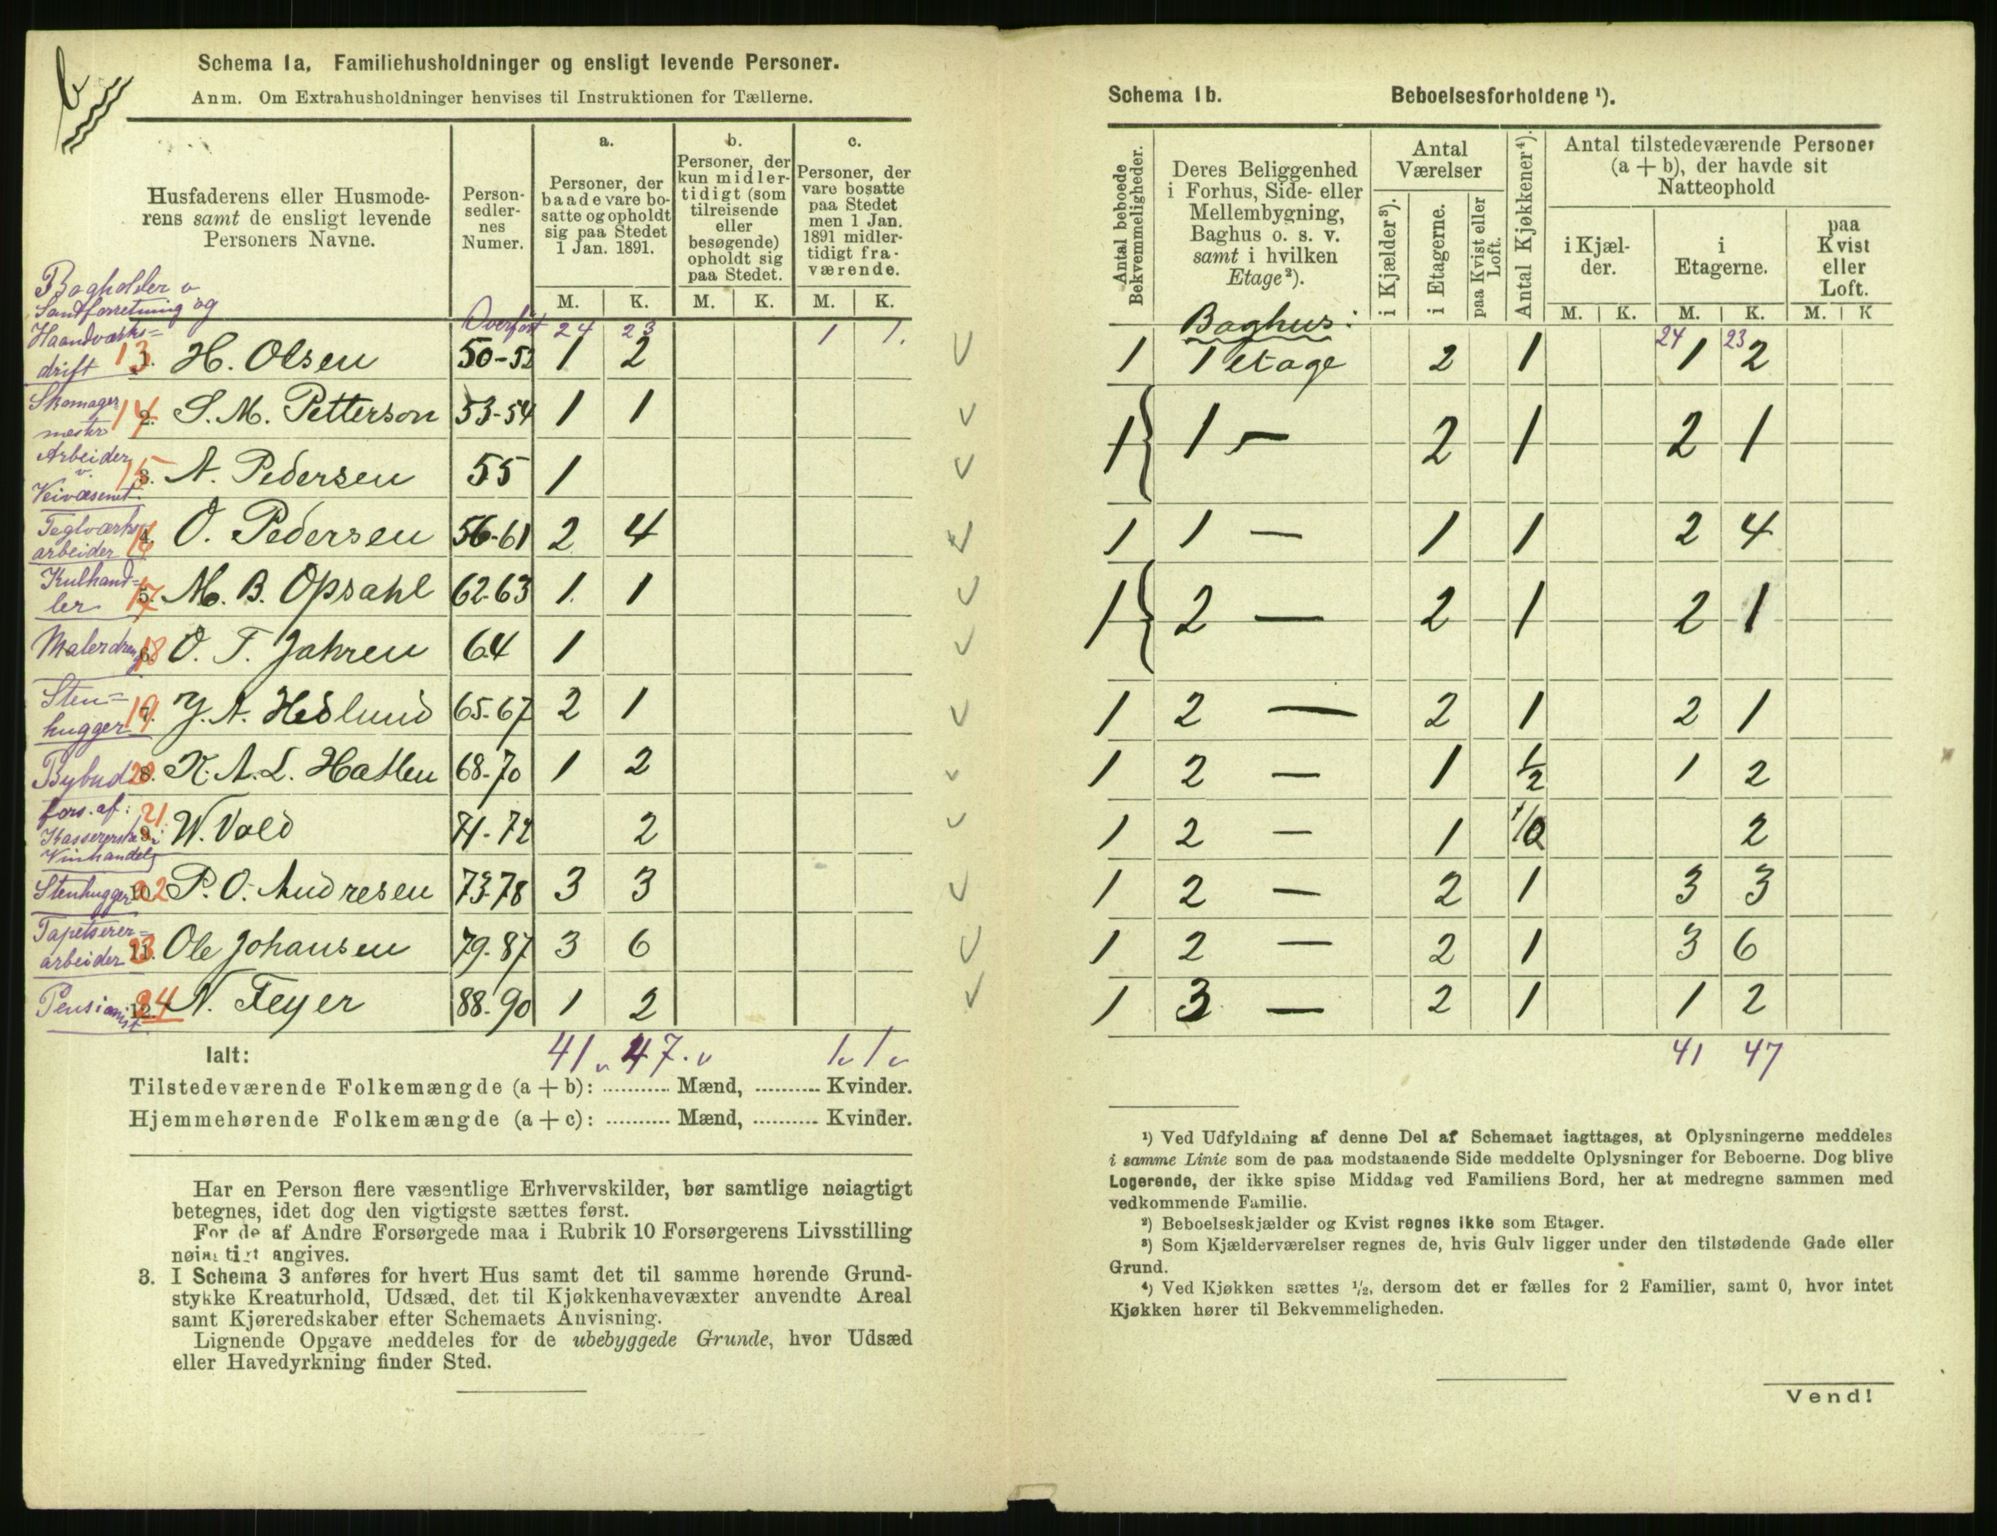 Schema 1a. Familiehusholdninger og ensligt levende Personer.
Anm. Om Extrahusholdninger henvises til Instruktionen for Tællerne.
Husfaderens eller Husmode-
rens samt de ensligt levende
Personers Navne.
Person-
sedler-
nes
Numer.
a.
Personer, der
baade vare bo-
satte og opholdt
sig paa Stedet
1 Jan. 1891.
b.
Personer, der
kun midler-
tidigt (som
tilreisende
eller
besøgende)
opholdt sig
paa Stedet.
c.
Personer, der
vare bosatte
paa Stedet
men 1 Jan.
1891 midler-
tidigt fra-
værende.
M. K. M. K. M. K.
Bogholder v
og
Haandværks=
drift
Overført 24 23 1 1.
13 1. H. Olsen 50-52 1 2
Skomager
mester
14 2. S. M. Petterson 53-54 1 1
Arbeider
v.
Veivæsenet.
15 3. A. Pedersen 55 1
Teglværks
arbeider
16 4. O. Pedersen 56-61 2 4
Kulhand=
ler
17 5. M. B. Opsahl 62-63 1 1
Malerdreng 18 6. O. T. Jahren 64 1
Sten=
hugger
19 7. J. A. Hedlund 65-67 2 1
Bybud 20 8. K. A. L. Hatlen 68-70 1 2
fors. af:
Vinhandel
21. 9. W. Vold 71-72 2
Stenhugger 22 10. P. O. Andresen 73-78 3 3
Tapetserer=
arbeider
23 11. Ole Johansen 79-87 3 6
Pensionist. 24 12. N. Feyer 88-90 1 2
Ialt: 41 47 1 1
Tilstedeværende Folkemængde (a + b): .......... Mænd, .......... Kvinder.
Hjemmehørende Folkemængde (a + c): .......... Mænd, .......... Kvinder.
Har en Person flere væsentlige Erhvervskilder, bør samtlige nøiagtigt
betegnes, idet dog den vigtigste sættes først.
For de af Andre Forsørgede maa i Rubrik 10 Forsørgerens Livsstilling
nøiagtigt angives.
3. I Schema 3 anføres for hvert Hus samt det til samme hørende Grund-
stykke Kreaturhold, Udsæd, det til Kjøkkenhavevæxter anvendte Areal
samt Kjøreredskaber efter Schemaets Anvisning.
Lignende Opgave meddeles for de ubebyggede Grunde, hvor Udsæd
eller Havedyrkning finder Sted.
Schema 1b. Beboelsesforholdene ¹).
Antal beboede
Bekvemmeligheder.
Deres Beliggenhed
i Forhus, Side- eller
Mellembygning,
Baghus o. s. v.
samt i hvilken
Etage²).
Antal
Værelser
i Kjælder³).
i Etagerne.
paa Kvist eller
Loft.
Antal Kjøkkener⁴).
Antal tilstedeværende Personer
(a + b), der havde sit
Natteophold
i Kjæl-
der.
i
Etagerne.
paa
Kvist
eller
Loft.
M. K. M. K. M. K
Baghus: 24 23
1 1 etage 2 1 1 2
1 1 — 2 1 2 1
1 1 — 1 1 2 4
1 2 — 2 1 2 1
1 2 — 2 1 2 1
1 2 — 1 ½ 1 2
1 2 — 1 2
1 2 — 2 1 3 3
1 2 — 2 1 3 6
1 3 — 2 1 1 2
41 47
¹) Ved Udfyldning af denne Del af Schemaet iagttages, at Oplysningerne meddeles
i samme Linie som de paa modstaaende Side meddelte Oplysninger for Beboerne. Dog blive
Logerende, der ikke spise Middag ved Familiens Bord, her at medregne sammen med
vedkommende Familie.
²) Beboelseskjælder og Kvist regnes ikke som Etager.
³) Som Kjælderværelser regnes de, hvis Gulv ligger under den tilstødende Gade eller
Grund.
⁴) Ved Kjøkken sættes ¹/₂, dersom det er fælles for 2 Familier, samt 0, hvor intet
Kjøkken hører til Bekvemmeligheden.
Vend!